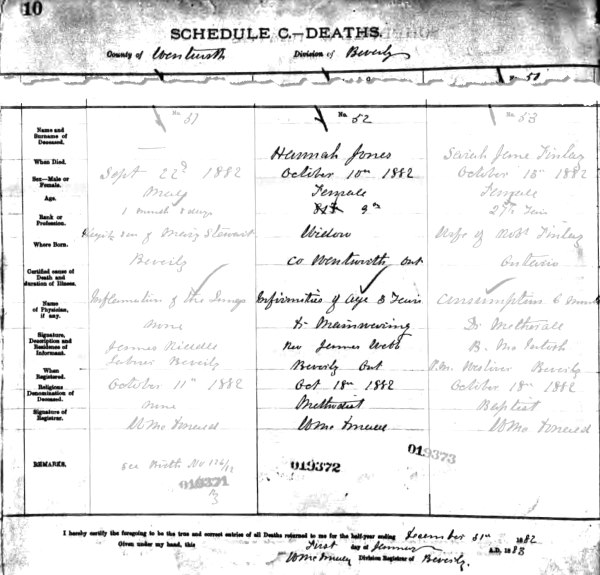 10
SCHEDULE C.—DEATHS.
County of Wentworth Division of Beverly
No. 51 No. 52 No. 53
Name and Surname of Deceased. Hannah Jones Sarah Jane Finlay
When Died. Sept 22d 1882 October 10th 1882 October 15th 1882
Sex—Male or Female. Male Female Female
Age. 1 month 8 days 27 Years
Rank or Profession. son of Mary Stewart Widow Wife of Robt Finlay
Where Born. Beverly Co Wentworth Ont Ontario
Certified cause of Death and duration of Illness. Inflamation of the Lungs Infirmities of age 3 Years Consumption 6 months
Name of Physician, if any. none Dr Mainwaring Dr Metherall
Signature, Description and Residence of Informant. James Riddle Rev James Webb B. McIntosh
Beverly Beverly Ont P.M. Beverly
When Registered. October 11th 1882 Oct 18th 1882 October 18th 1882
Religious Denomination of Deceased. none Methodist Baptist
Signature of Registrar.
REMARKS. see Birth No 126/12 019372 019373
019371
I hereby certify the foregoing to be the true and correct entries of all Deaths returned to me for the half-year ending December 31st 1882
Given under my hand, this First day of January A.D. 1883
Division Registrar of Beverly.